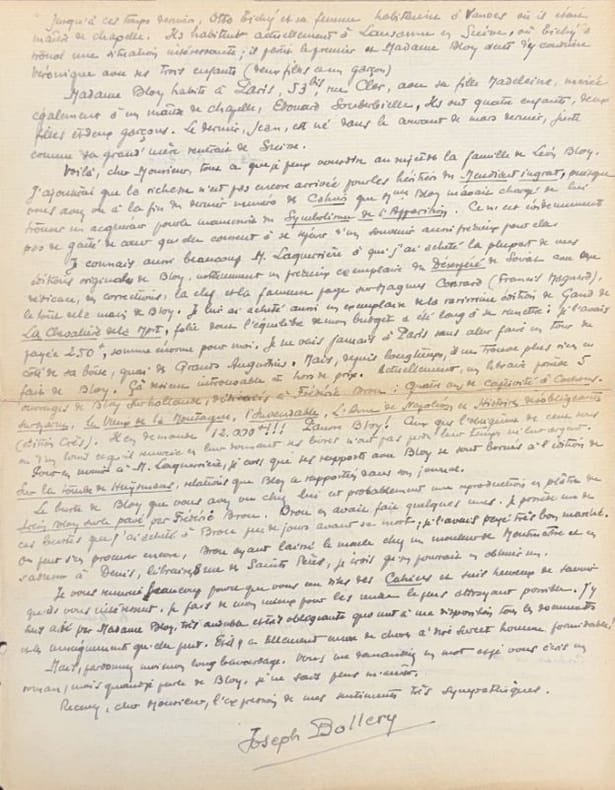 Jusqu'à ces temps derniers, Otto Tichý et sa femme habitaient à Vanves où il était
maître de chapelle. Ils habitent actuellement à Lausanne en Suisse, où Tichý a
trouvé une situation intéressante ; il a Madame Bloy vient d'y conduire
Véronique avec ses trois enfants (deux filles et un garçon)
Madame Bloy habite à Paris, 53 bis, rue Cler, avec sa fille Madeleine, mariée
également à un maître de chapelle, Edouard Souberbielle. Ils ont quatre enfants, deux
filles et deux garçons. Le dernier, Jean, est né dans le courant de mars dernier, juste
comme sa grand'mère rentrait de Suisse.
Voilà, cher Monsieur, tout ce que je peux vous dire au sujet de la famille de Léon Bloy.
J'ajouterai que la richesse n'est pas encore arrivée pour les héritiers du Mendiant ingrat, puisque
vous avez vu à la fin du dernier numéro de Cahiers que Mme Bloy m'avait chargé de lui
trouver un acquéreur pour le manuscrit du Symbolisme de l'Apparition. Ce n'est évidemment
pas de gaîté de cœur qu'elle consent à se séparer d'un souvenir aussi précieux pour elle.
Je connais aussi beaucoup M. Laquerrière à qui j'ai acheté la plupart de mes
éditions originales de Bloy, notamment un précieux exemplaire du Désespéré de Soirat avec une
dédicace, en corrections, la clef et la fameuse page sur Magnus Conrard (Francis Magnard),
le tout de la main de Bloy. Je lui ai acheté aussi un exemplaire de la rarissime édition de Gand de
La Chevalière de la Mort, folie dont l'équilibre de mon budget a été long à se remettre : je l'avais
payée 250 f, somme énorme pour moi. Je ne vais jamais à Paris sans aller faire un tour du
côté de sa boîte, quai des Grands Augustins. Mais, depuis longtemps, il ne trouve plus rien en
fait de Bloy. Ça devient introuvable et hors de prix. Actuellement, un libraire possède 5
ouvrages de Bloy sur hollande, dédicacés à Frédéric Brou : Quatre ans de captivité à Cochons-
sur-Marne, Le Vieux de la Montagne, l'Invendable, L'Ame de Napoléon et Histoires désobligeantes
(édition Crès). Il en demande 12.000 f !!! Pauvre Bloy !
n'ont pas perdu leur temps ni leur argent.
Pour en revenir à M. Laquerrière, je crois que ses rapports avec Bloy se sont bornés à l'édition de
Sur la tombe de Huysmans, relations que Bloy a rapportées dans son journal.
Le buste de Bloy que vous avez vu chez lui est probablement une reproduction en plâtre de
Léon Bloy par Frédéric Brou. Brou en avait fait quelques uns. Je possède un de
ces bustes que j'ai acheté à Brou peu de jours avant sa mort, je l'avais payé très bon marché.
On peut s'en procurer encore, Brou ayant laissé le moule chez un mouleur de Montmartre et en
s'adressant à Denis, libraire, rue des Saints Pères, je crois qu'on pourrait en obtenir un.
Je vous remercie beaucoup pour ce que vous me dites des Cahiers et suis heureux de savoir
qu'ils vous intéressent. Je fais de mon mieux pour les rendre le plus attrayants possible. J'y
suis aidé par Madame Bloy, très aimable et très obligeante qui met à ma disposition tous les documents
et les renseignements qu'elle peut. Et il y a tellement encore de choses à dire sur cet homme formidable !
Mais, pardonnez moi mon long bavardage. Vous me demandiez un mot et je vous écris un
roman, mais quand je parle de Bloy, je ne sais plus m'arrêter.
Recevez, cher Monsieur, l'expression de mes sentiments très sympathiques.
Joseph Bollery